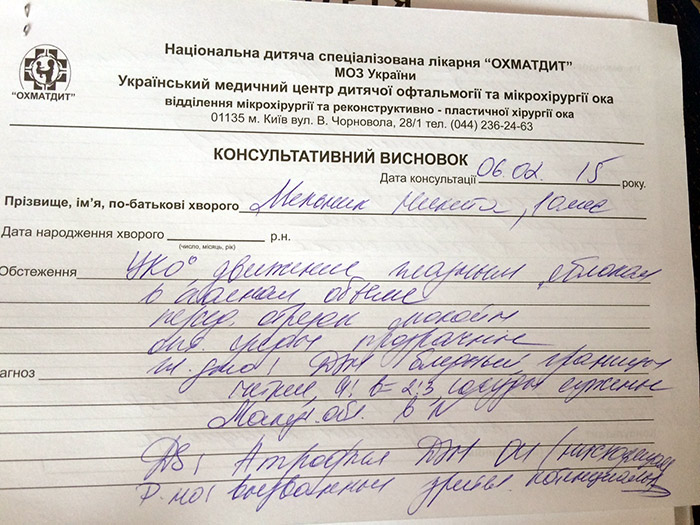 "ОХМАТДИТ"
Національна дитяча спеціалізована лікарня "ОХМАТДИТ"
МОЗ України
Український медичний центр дитячої офтальмогії та мікрохірургії ока
відділення мікрохірургії та реконструктивно - пластичної хірургії ока
01135 м. Київ вул. В. Чорновола, 28/1 тел. (044) 236-24-63
КОНСУЛЬТАТИВНИЙ ВИСНОВОК
Дата консультації 06.02. 15 року.
Прізвище, ім'я, по-батькові хворого Никита, 10мес
Дата народження хворого р.н.
(число, місяць, рік)
Обстеження движение глазным яблокам
в объеме
перед. отрезок спокойн
прозрачные
ДЗН бледный границы
агноз
четкие, сужение
обл. в N
DS: Атрофия ДЗН ОИ
вызванные потенциалы